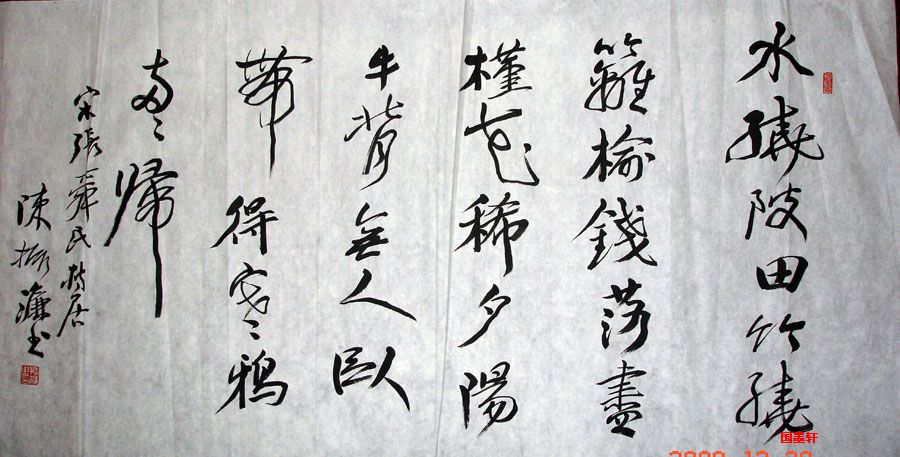 水繞陂田竹繞
籬榆錢落盡
槿花稀夕陽
牛背無人臥
帶得寒鴉
兩々歸
宋張舜民村居
陳振濂书